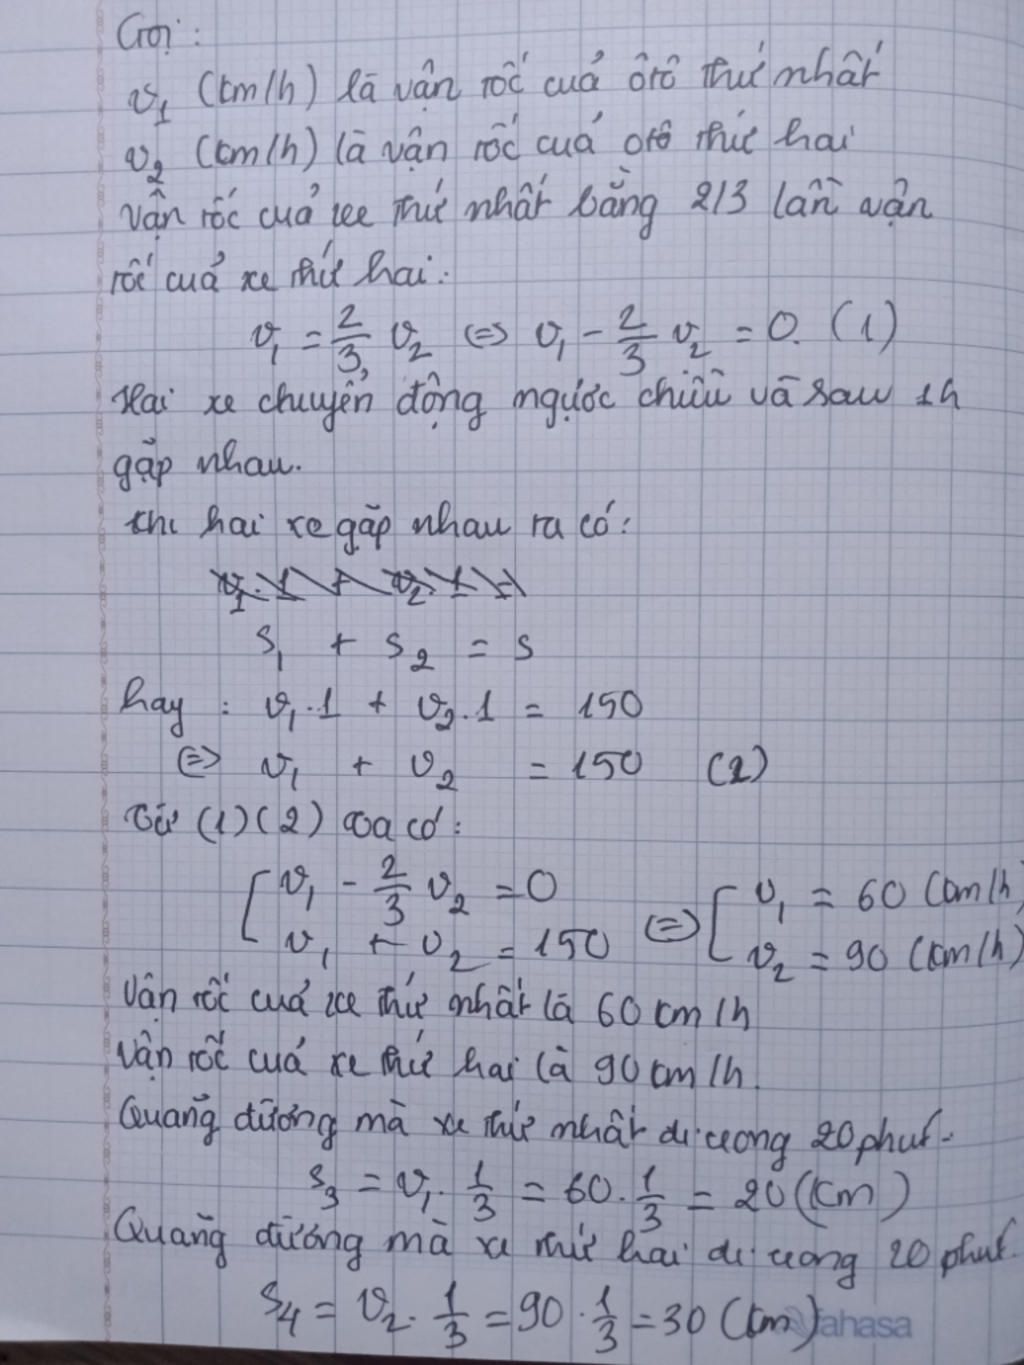 Gọi:
v₁ (km/h) là vận tốc của ôtô thứ nhất
v₂ (km/h) là vận tốc của ôtô thứ hai
Vận tốc của xe thứ nhất bằng 2/3 lần vận
tốc của xe thứ hai:
v₁ = 2/3 v₂ <=> v₁ - 2/3 v₂ = 0. (1)
Hai xe chuyển động ngược chiều và sau 1h
gặp nhau.
Khi hai xe gặp nhau ta có:
v₁.1 + v₂.1 =
s₁ + s₂ = s
hay : v₁.1 + v₂.1 = 150
<=> v₁ + v₂ = 150 (2)
Từ (1)(2) ta có:
[ v₁ - 2/3 v₂ = 0 <=> [ v₁ = 60 (km/h)
v₁ + v₂ = 150 v₂ = 90 (km/h)
Vận tốc của xe thứ nhất là 60 km/h
Vận tốc của xe thứ hai là 90 km/h.
Quãng đường mà xe thứ nhất đi trong 20 phút.
s₃ = v₁. 1/3 = 60. 1/3 = 20 (km)
Quãng đường mà xe thứ hai đi trong 20 phút.
s₄ = v₂. 1/3 = 90. 1/3 = 30 (km)
ahasa